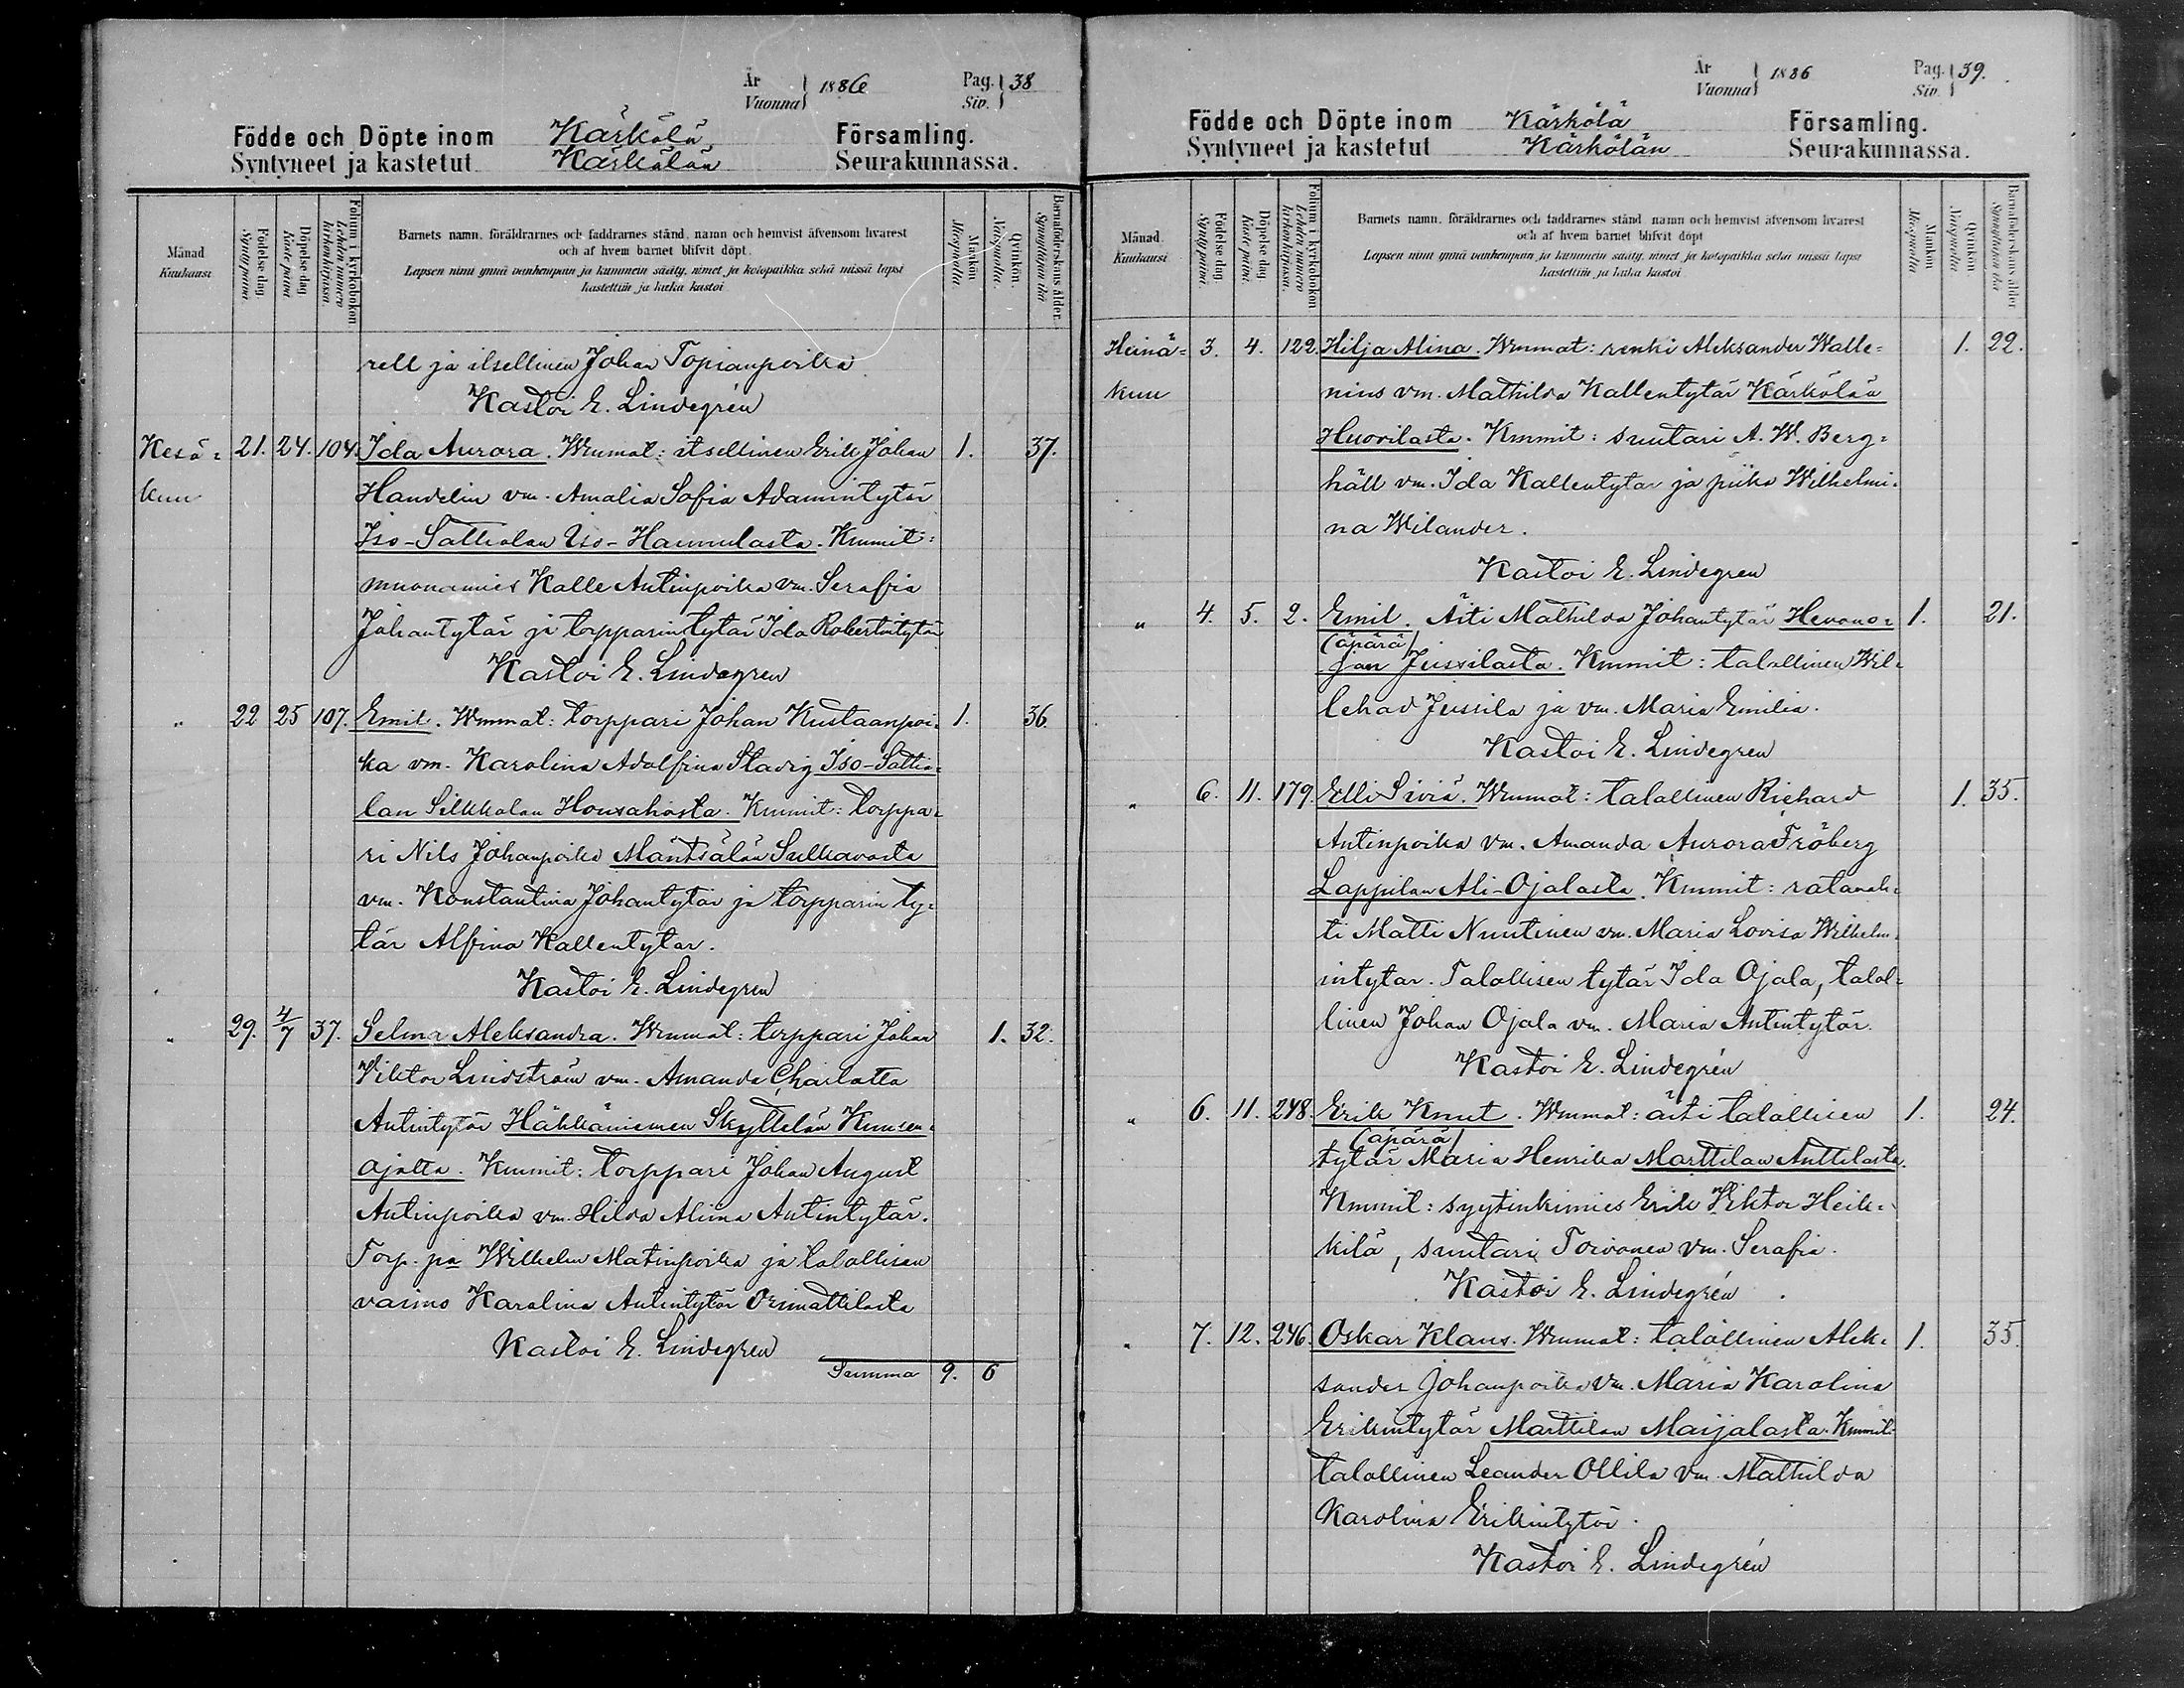 År
Vuonna
1886
Pag.
Siv.
38
Födde och Döpte inom Kärkölä Församling.
Syntyneet ja kastetut Kärkölän Seurakunnassa.
Månad
Kuukausi
Födelse dag.
Syntypäivä.
Döpelse dag.
Kaste päivä
Folium i kyrkobokon
Lehden numero kirkonkirjassa.
Barnets namn, föräldrarnes och faddrarnes stånd, namn och hemvist äfvensom hvarest
och af hvem barnet blifvit döpt.
Lapsen nimi ynnä vanhempain ja kummein sääty, nimet ja kotopaikka sekä missä lapsi
kastettiin ja kuka kastoi
Mankön
Miespuolia.
Qvinkön.
Vaispuolia.
Barnaföderskans ålder.
Synnyttäjän ikä
rell ja itsellinen Johan Topianpoika
Kastoi E. Lindegrén
Kesä= 21. 24. 104. Ida Aurora. Wmmat: itsellinen Erik Johan 1. 37.
kuu Handelin vm. Amalia Sofia Adamintytär
Iso-Sattialan Iso-Hannulasta. Kmmit:
muonamies Kalle Antinpoika vm. Serafia
Johantytär ja torpparintytär Ida Robertintytär
Kastoi E. Lindegren
" 22 25 107. Emil. Wmmat: torppari Johan Kustaanpoi= 1. 36.
ka vm. Karolina Adolfina Stavig Iso-Sattia=
lan Silkkalan Honsahosta. Kmmit: torppa=
ri Nils Johanpoika Mäntsälän Sulkavasta
vm. Konstantina Johantytär ja torpparin ty=
tär Alfina Kallentytar.
Kastoi E. Lindegren
" 29. 4/7 37. Selma Aleksandra. Wmmat: torppari Johan 1. 32.
Viktor Lindström vm. Amanda Charlotta
Antintytär Hähkäniemen Skyttelän Kuusen=
ojalta. Kmmit: torppari Johan August
Antinpoika vm. Hilda Alima Antintytär.
Torp. pa Wilhelm Matinpoika ja talollisen
vaimo Karolina Antintytär Orimattilasta
Kastoi E. Lindegren
Summa 9. 6
År
Vuonna
1886
Pag.
Siv.
39.
Födde och Döpte inom Kärkölä Församling.
Syntyneet ja kastetut Kärkölän Seurakunnassa.
Månad.
Kuukausi
Födelse dag.
Syntypäivä.
Döpelse dag.
Kaste päivä
Folium i kyrkobokon
Lehden numero kirkonkirjassa.
Barnets namn, föräldrarnes och faddrarnes stånd, namn och hemvist äfvensom hvarest
och af hvem barnet blifvit döpt
Lapsen nimi ynnä vanhempain ja kummein sääty, nimet ja kotopaikka sekä missä lapsi
kastettiin ja kuka kastoi
Mankön
Miespuolia.
Qvinkön
Vaispuolia.
Barnaföderskans ålder
Synnyttäjän ikä
Heinä= 3. 4. 122. Hilja Alina. Wmmat: renki Aleksander Walle= 1. 22.
kuu nius vm. Mathilda Kallentytär Kärkölän
Huovilasta. Kmmit: suutari A. W. Berg=
häll vm. Ida Kallentytar ja piika Wilhelmi=
na Wilander.
Kastoi E. Lindegren
" 4. 5. 2. Emil. Äiti Mathilda Johantytär Hevono= 1. 21.
(äpärä)
jan Jussilasta. Kmmit: talollinen Wil=
lehad Jussila ja vm. Maria Emilia.
Kastoi E. Lindegren
" 6. 11. 179. Elli Siviä. Wmmat: talollinen Richard 1. 35.
Antinpoika vm. Amanda Aurora Fröberg
Lappilan Ali-Ojalasta. Kmmit: ratavah=
ti Matti Nuutinen vm. Maria Lovisa Wilhelm=
intytar. Talollisen tytär Ida Ojala, talol=
linen Johan Ojala vm. Maria Antintytär.
Kastoi E. Lindegrén
" 6. 11. 248. Erik Knut. Wmmat: äiti talollisen 1. 24.
(äpärä)
tytär Maria Henrika Marttilan Anttilasta.
Kmmit: syytinkimies Erik Viktor Heik=
kilä, suutari Toivonen vm. Serafia.
Kastoi E. Lindegrén
" 7. 12. 246. Oskar Klaus. Wmmat: talollinen Alek= 1. 35.
sander Johanpoika vm. Maria Karolina
Erikintytär Marttilan Maijalasta. Kmmit:
talollinen Leander Ollila vm. Mathilda
Karolina Erikintytär.
Kastoi E. Lindegrén